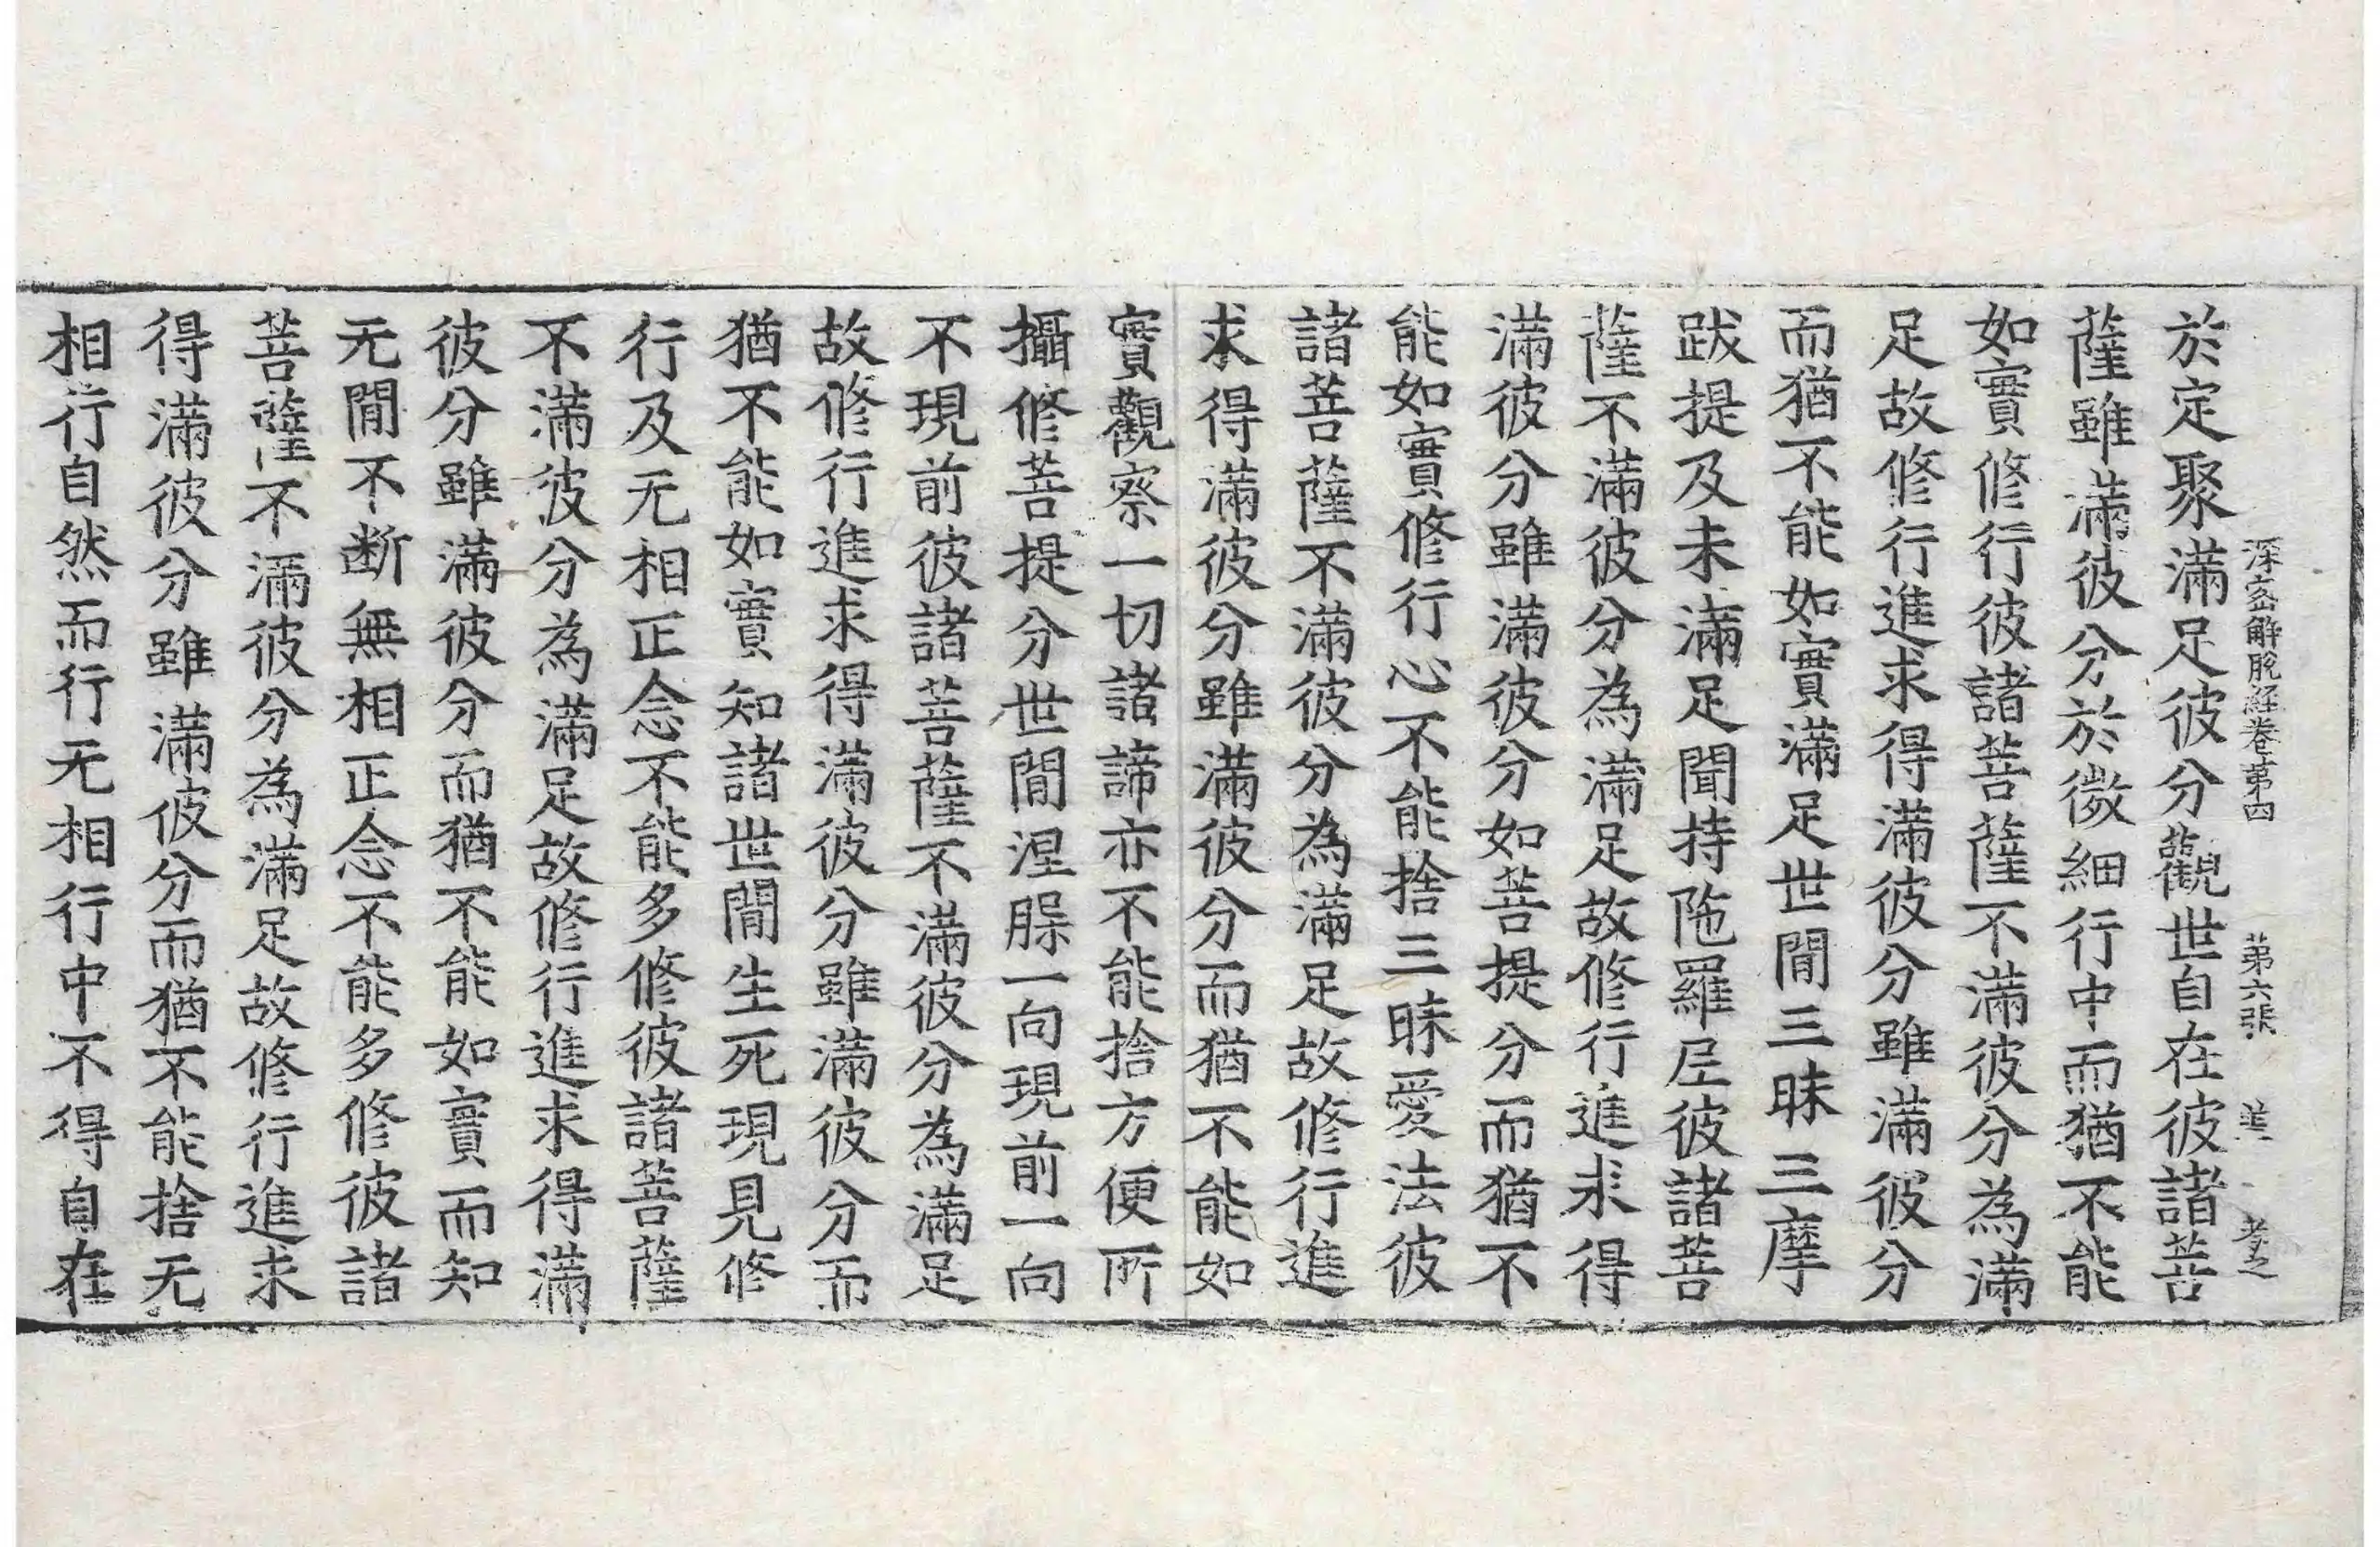 深密解脫経卷第四 第六張 羔 孝之
於定聚滿足彼分觀世自在彼諸菩
薩雖滿彼分於微細行中而猶不能
如實修行彼諸菩薩不滿彼分為滿
足故修行進求得滿彼分雖滿彼分
而猶不能如實滿足世間三昧三摩
跋提及未滿足聞持陁羅𡰱彼諸菩
薩不滿彼分為滿足故修行進求得
滿彼分雖滿彼分如菩提分而猶不
能如實修行心不能捨三昧愛法彼
諸菩薩不滿彼分為滿足故修行進
求得滿彼分雖滿彼分而猶不能如
實觀察一切諸諦亦不能捨方便所
攝修菩提分世間涅槃一向現前一向
不現前彼諸菩薩不滿彼分為滿足
故修行進求得滿彼分雖滿彼分而
猶不能如實知諸世間生死現見修
行及无相正念不能多修彼諸菩薩
不滿彼分為滿足故修行進求得滿
彼分雖滿彼分而猶不能如實而知
无間不断無相正念不能多修彼諸
菩薩不滿彼分為滿足故修行進求
得滿彼分雖滿彼分而猶不能捨无
相行自然而行无相行中不得自在